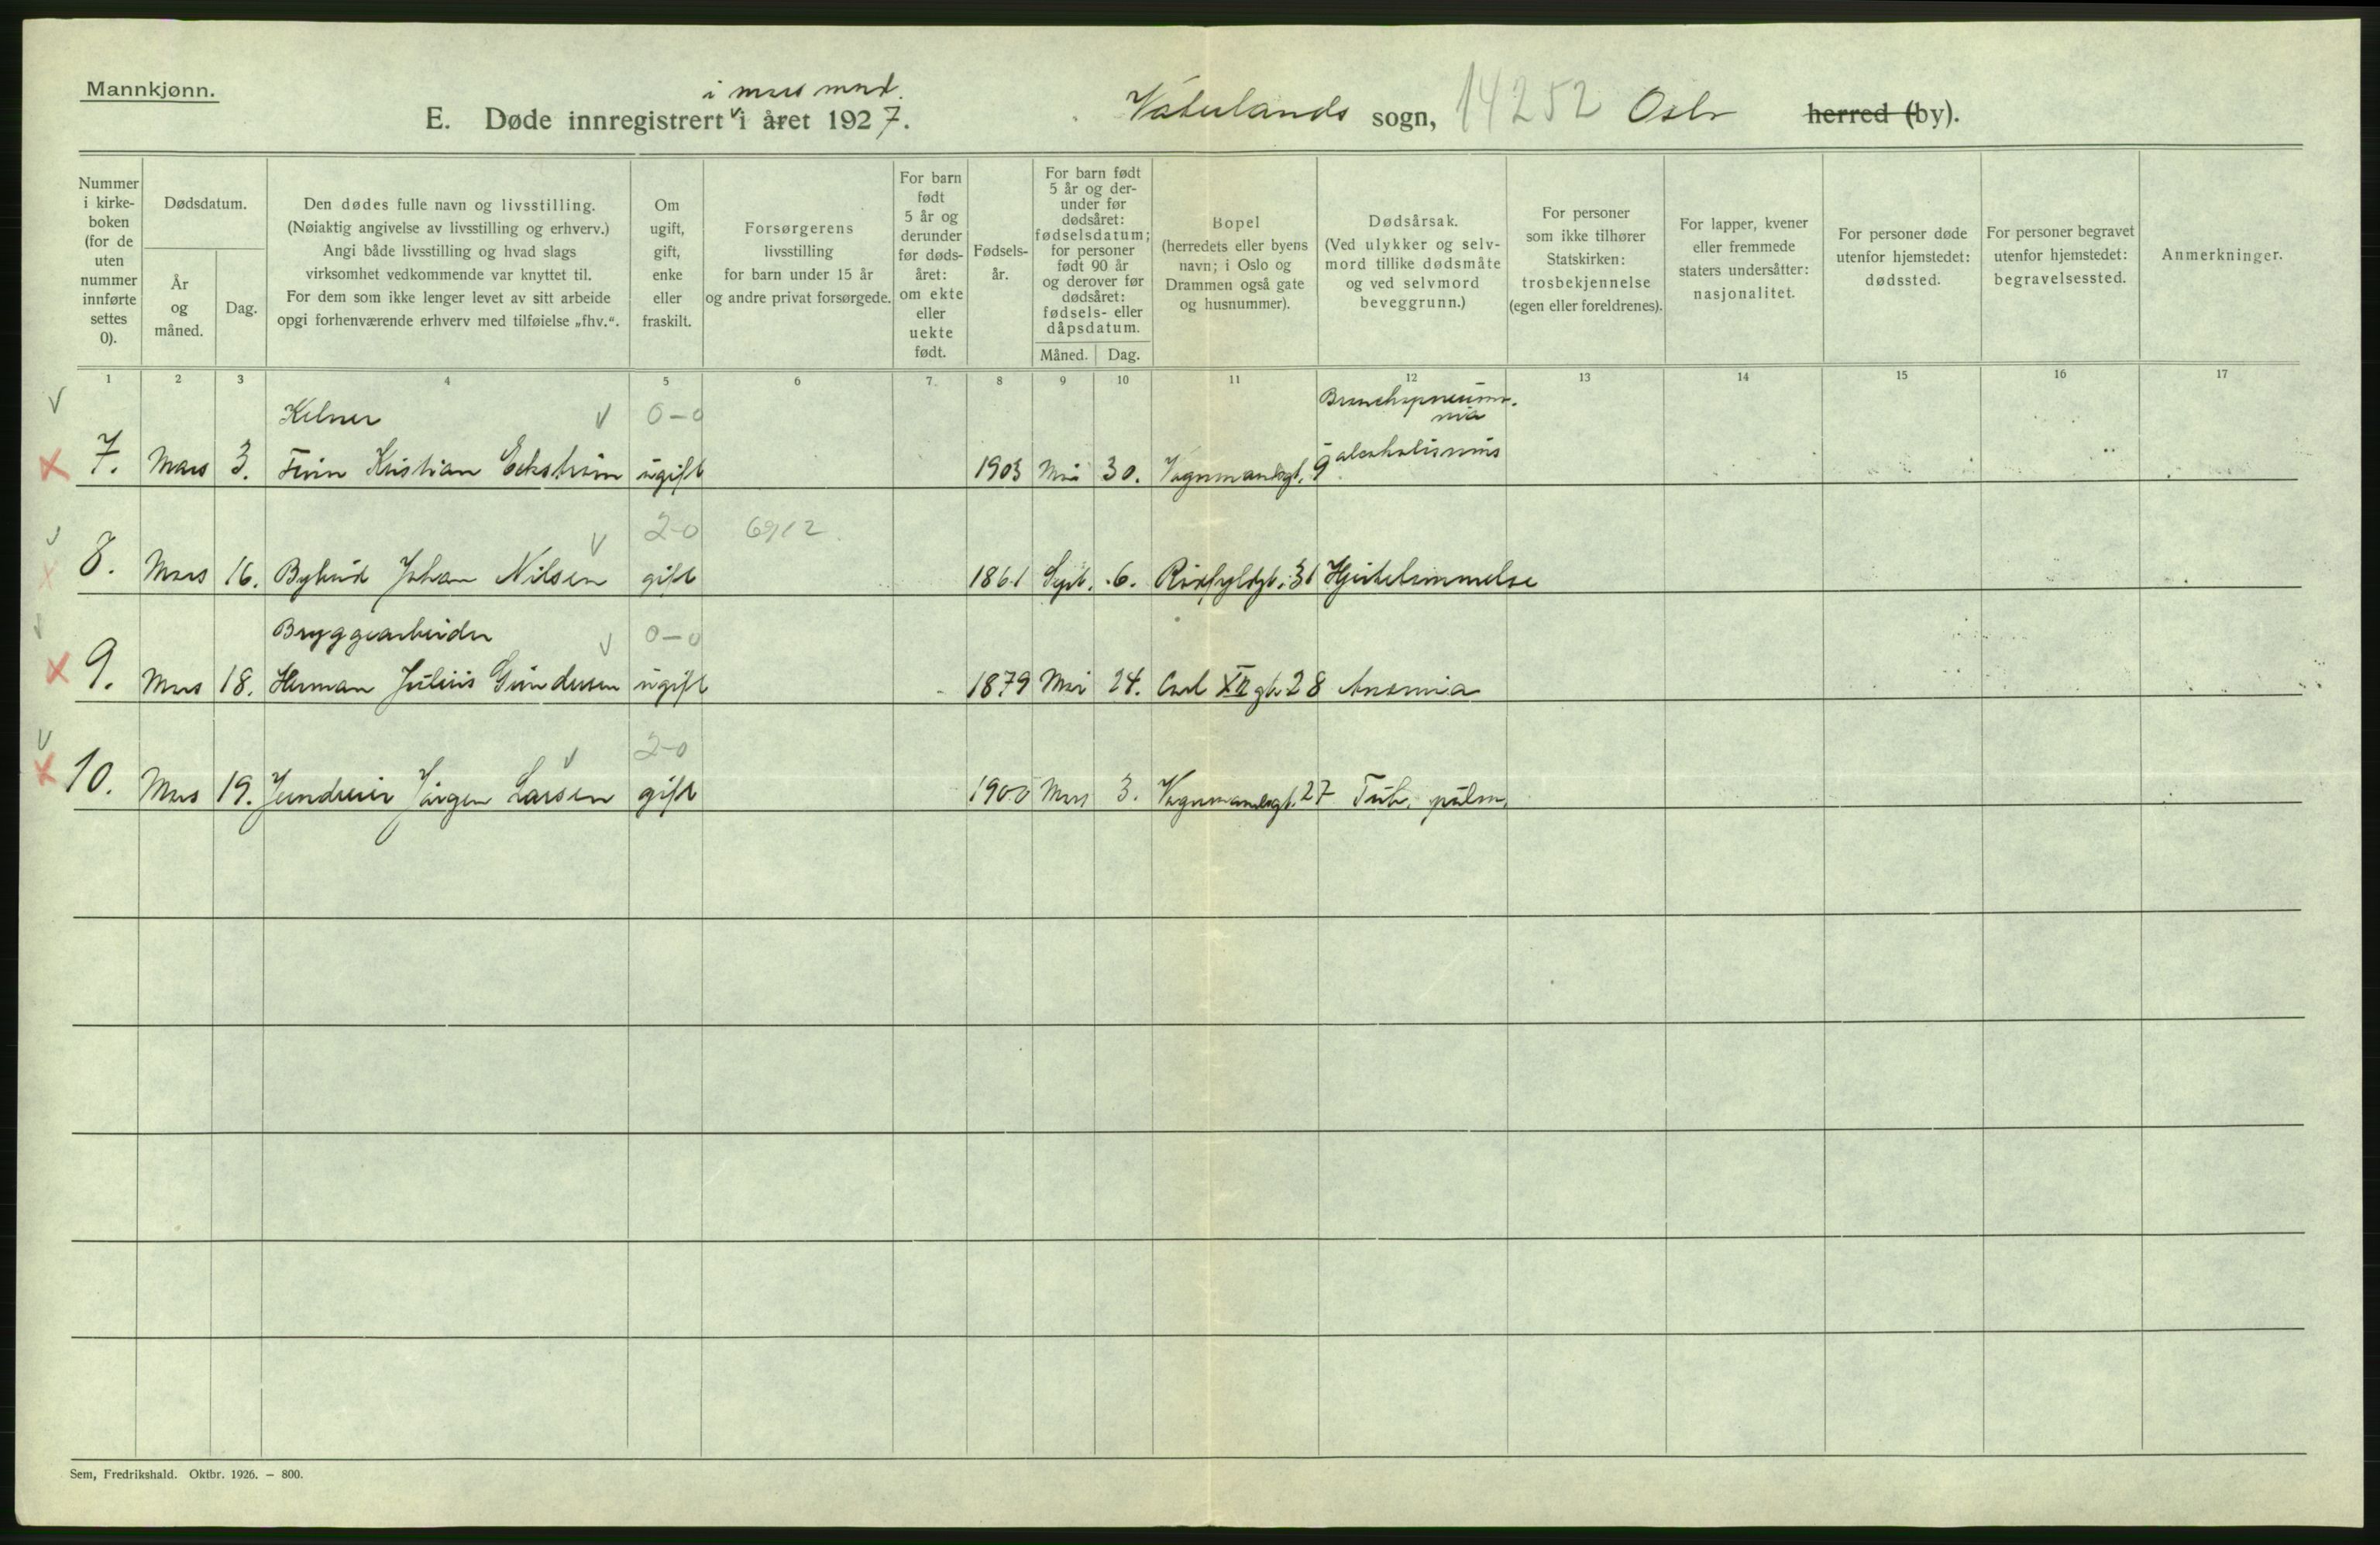 Mannkjønn.
i mars mnd.
E. Døde innregistrert i året 1927.
Vaterlands sogn, 14252 Oslo herred (by).
Nummer i kirke- boken (for de uten nummer innførte settes 0).
Dødsdatum.
År og måned.
Dag.
Den dødes fulle navn og livsstilling.
(Nøiaktig angivelse av livsstilling og erhverv.)
Angi både livsstilling og hvad slags
virksomhet vedkommende var knyttet til.
For dem som ikke lenger levet av sitt arbeide
opgi forhenværende erhverv med tilføielse „fhv.“.
Om ugift, gift, enke eller fraskilt.
Forsørgerens
livsstilling
for barn under 15 år
og andre privat forsørgede.
For barn født 5 år og derunder før døds- året: om ekte eller uekte født.
Fødsels- år.
For barn født 5 år og der- under før dødsåret: fødselsdatum; for personer født 90 år og derover før dødsåret: fødsels- eller dåpsdatum.
Måned. Dag.
Bopel
(herredets eller byens
navn; i Oslo og
Drammen også gate
og husnummer).
Dødsårsak.
(Ved ulykker og selv-
mord tillike dødsmåte
og ved selvmord
beveggrunn.)
For personer
som ikke tilhører
Statskirken:
trosbekjennelse
(egen eller foreldrenes).
For lapper, kvener
eller fremmede
staters undersåtter:
nasjonalitet.
For personer døde
utenfor hjemstedet:
dødssted.
For personer begravet
utenfor hjemstedet:
begravelsessted.
Anmerkninger.
1 2 3 4 5 6 7. 8 9 10 11 12 13 14 15 16 17
Kelner 0-0 Bronchopneumo-
nia
7. Mars 3. Finn Kristian Eckstrøm ugift 1903 Mai 30. Vognmandsgt. 9 alcoholismus
2-0 6912
8. Mars 16. Bybud Johan Nilsen gift 1861 Sept. 6. Rødfyldgt. 31 Hjertelammelse
Bryggearbeider 0-0
9. Mars 18. Herman Julius Gundersen ugift 1879 Mai 24. Carl XII gt. 28 Anæmia
2-0
10. Mars 19. Jørgen Larsen gift 1900 Mars 3. Vognmandsgt. 27 Tub. pulm.
Sem, Fredrikshald. Oktbr. 1926. – 800.